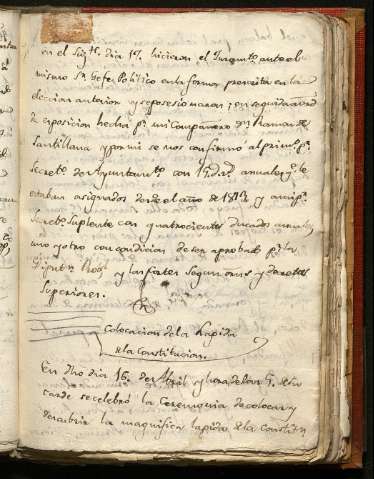 en el sigte. dia 17. hicieron el Juramto. ante el
mismo Sr. Gefe Politico en la forma prevenida en la
eleccion anterior y se posesionaron; en seguida
de exposicion hecha pr. mi Compañero Dn. Ramon de
Santillana y por mi se nos confirmó al prim.
Secreto. de Ayuntamto. con ducads. anuales qe. le
estaban asignados desde el año de 1813 y a mi pr.
Secreto. Suplente con quatrocientos ducados anuales
uno y otro con condicion de ser aprobado pr. la
Diputn. y las Cortes segun ordns. y decretos
Superiores.
Colocacion de la Lapida
de la Constitucion.
En dho dia 16. de Abril y hora de las 5. de la
tarde se celebró la Ceremonia de colocar y
descubrir la magnifica lapida de la Constitn.